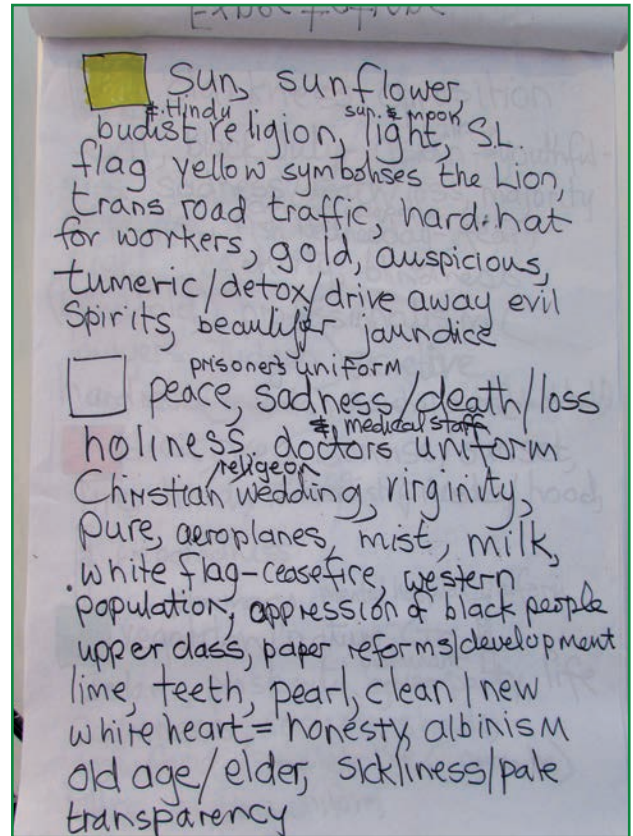 Sun, sunflower,
&.Hindu sun. & moon
budist religion, light, S.L.
flag yellow symbolises the Lion,
trans road traffic, hard:hat
for workers, gold, auspicious,
tumeric/detox/drive away evil
Spirits, beautifyer jaundice
prisoner's uniform
peace, sadness/death/loss
& medical staff
holiness, doctors uniform
/religeon
Christian wedding, virginity,
pure, aeroplanes, mist, milk,
white flag-ceasefire, western
population, oppression of black people
upper class, paper reforms/development
lime, teeth, pearl, clean/new
white heart = honesty, albinism
old age/elder, sickliness/pale
transparency